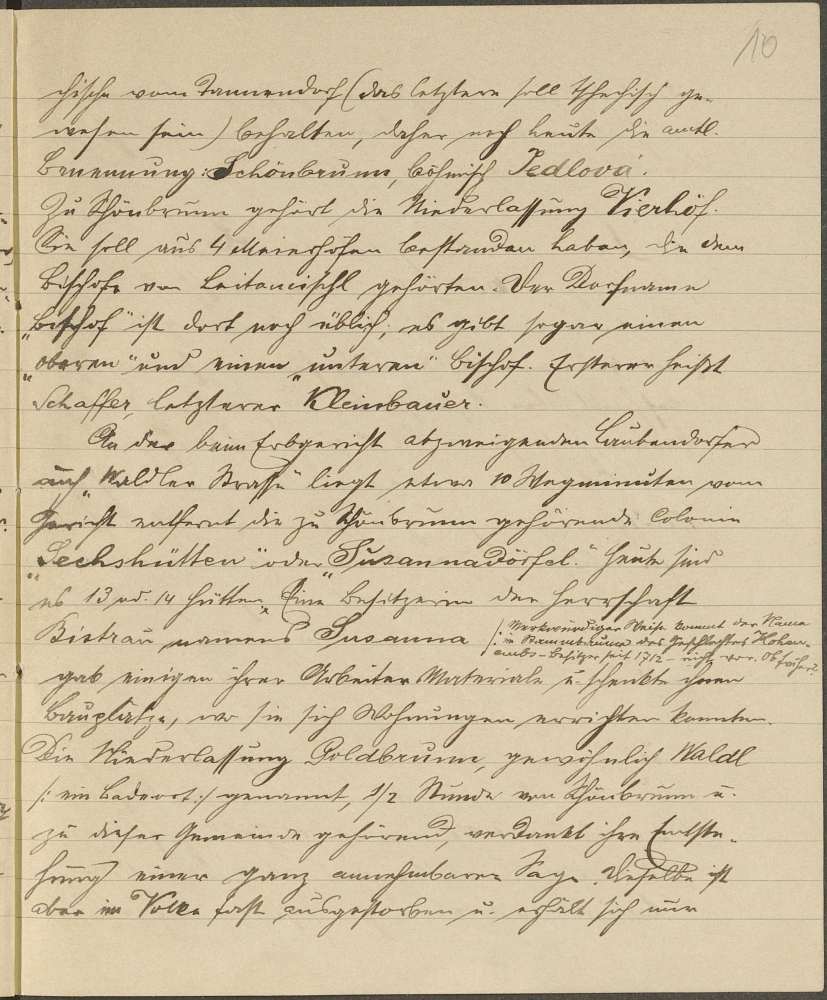 10
chische vom Tannendorf (das letztere soll tschechisch ge-
wesen sein) behalten, daher noch heute die amtl.
Benennung: Schönbrunn, böhmisch Jedlová.
Zu Schönbrunn gehört die Niederlassung Vierhöf.
Sie soll aus 4 Meierhöfen bestanden haben, die dem
Bischofe von Leitomischl gehörten. Der Dorfname
"Bischof" ist dort noch üblich; es gibt sogar einen
"oberen" und einen "unteren" Bischof. Ersterer heißt
Schaffer, letzterer Kleinbauer.
An der beim Erbgericht abzweigenden Laubendorfer
auch "Waldler Strasse" liegt etwa 10 Wegminuten vom
Gericht entfernt die zu Schönbrunn gehörende Colonie
"Sechshütten" oder "Susannadörfel." Heute sind
es 13 od. 14 Hütten. Eine Besitzerin der Herrschaft
Bistrau namens Susanna /: Merkwürdiger Weise kommt der Name
im Stammbaume des Geschlechtes Hohen-
embs - Besitzer seit 1712 - nicht vor. Ob früher?
gab einigen ihrer Arbeiter Materiale u. schenkte ihnen
Bauplätze, wo sie sich Wohnungen errichten konnten.
Die Niederlassung Goldbrunn, gewöhnlich Waldl
/: ein Badeort :/ genannt, 1/2 Stunde von Schönbrunn u.
zu dieser Gemeinde gehörend, verdankt ihre Entste-
hung einer ganz annehmbaren Sage. Dieselbe ist
aber im Volke fast ausgestorben u. erhält sich nur